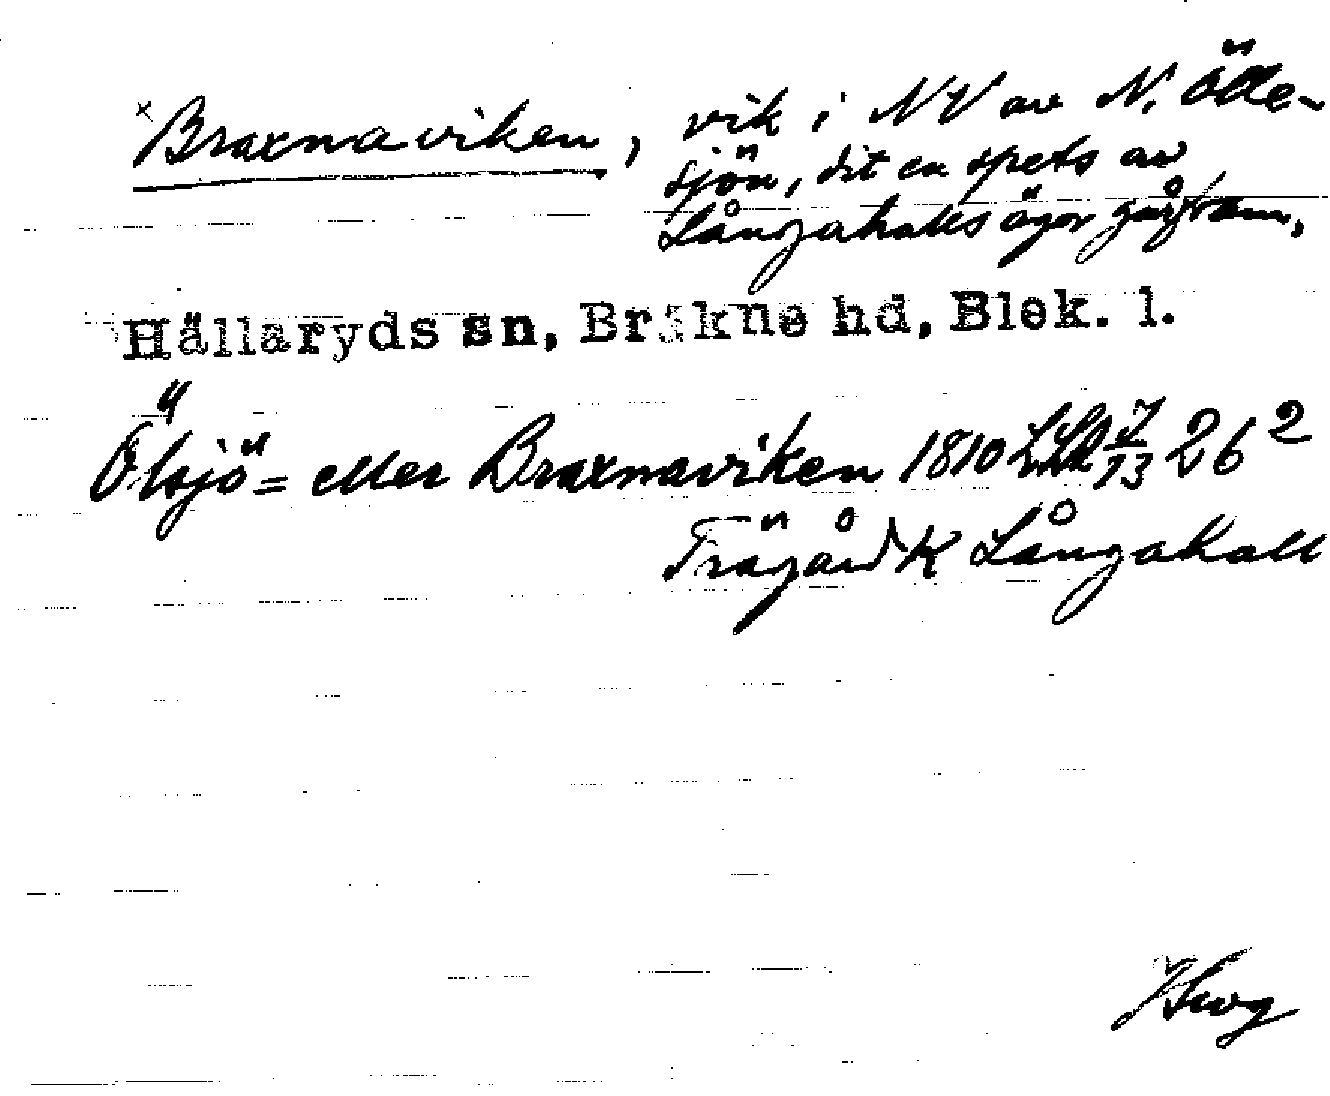 × Braxnaviken, vik i NV av N. Öllesjön, dit en spets av
Långahalls ägor gå fram,
Hällaryds sn, Bräkne hd, Blek. l.
Ölsjö= eller Braxnaviken 1810 26²
Trägård K Långahall